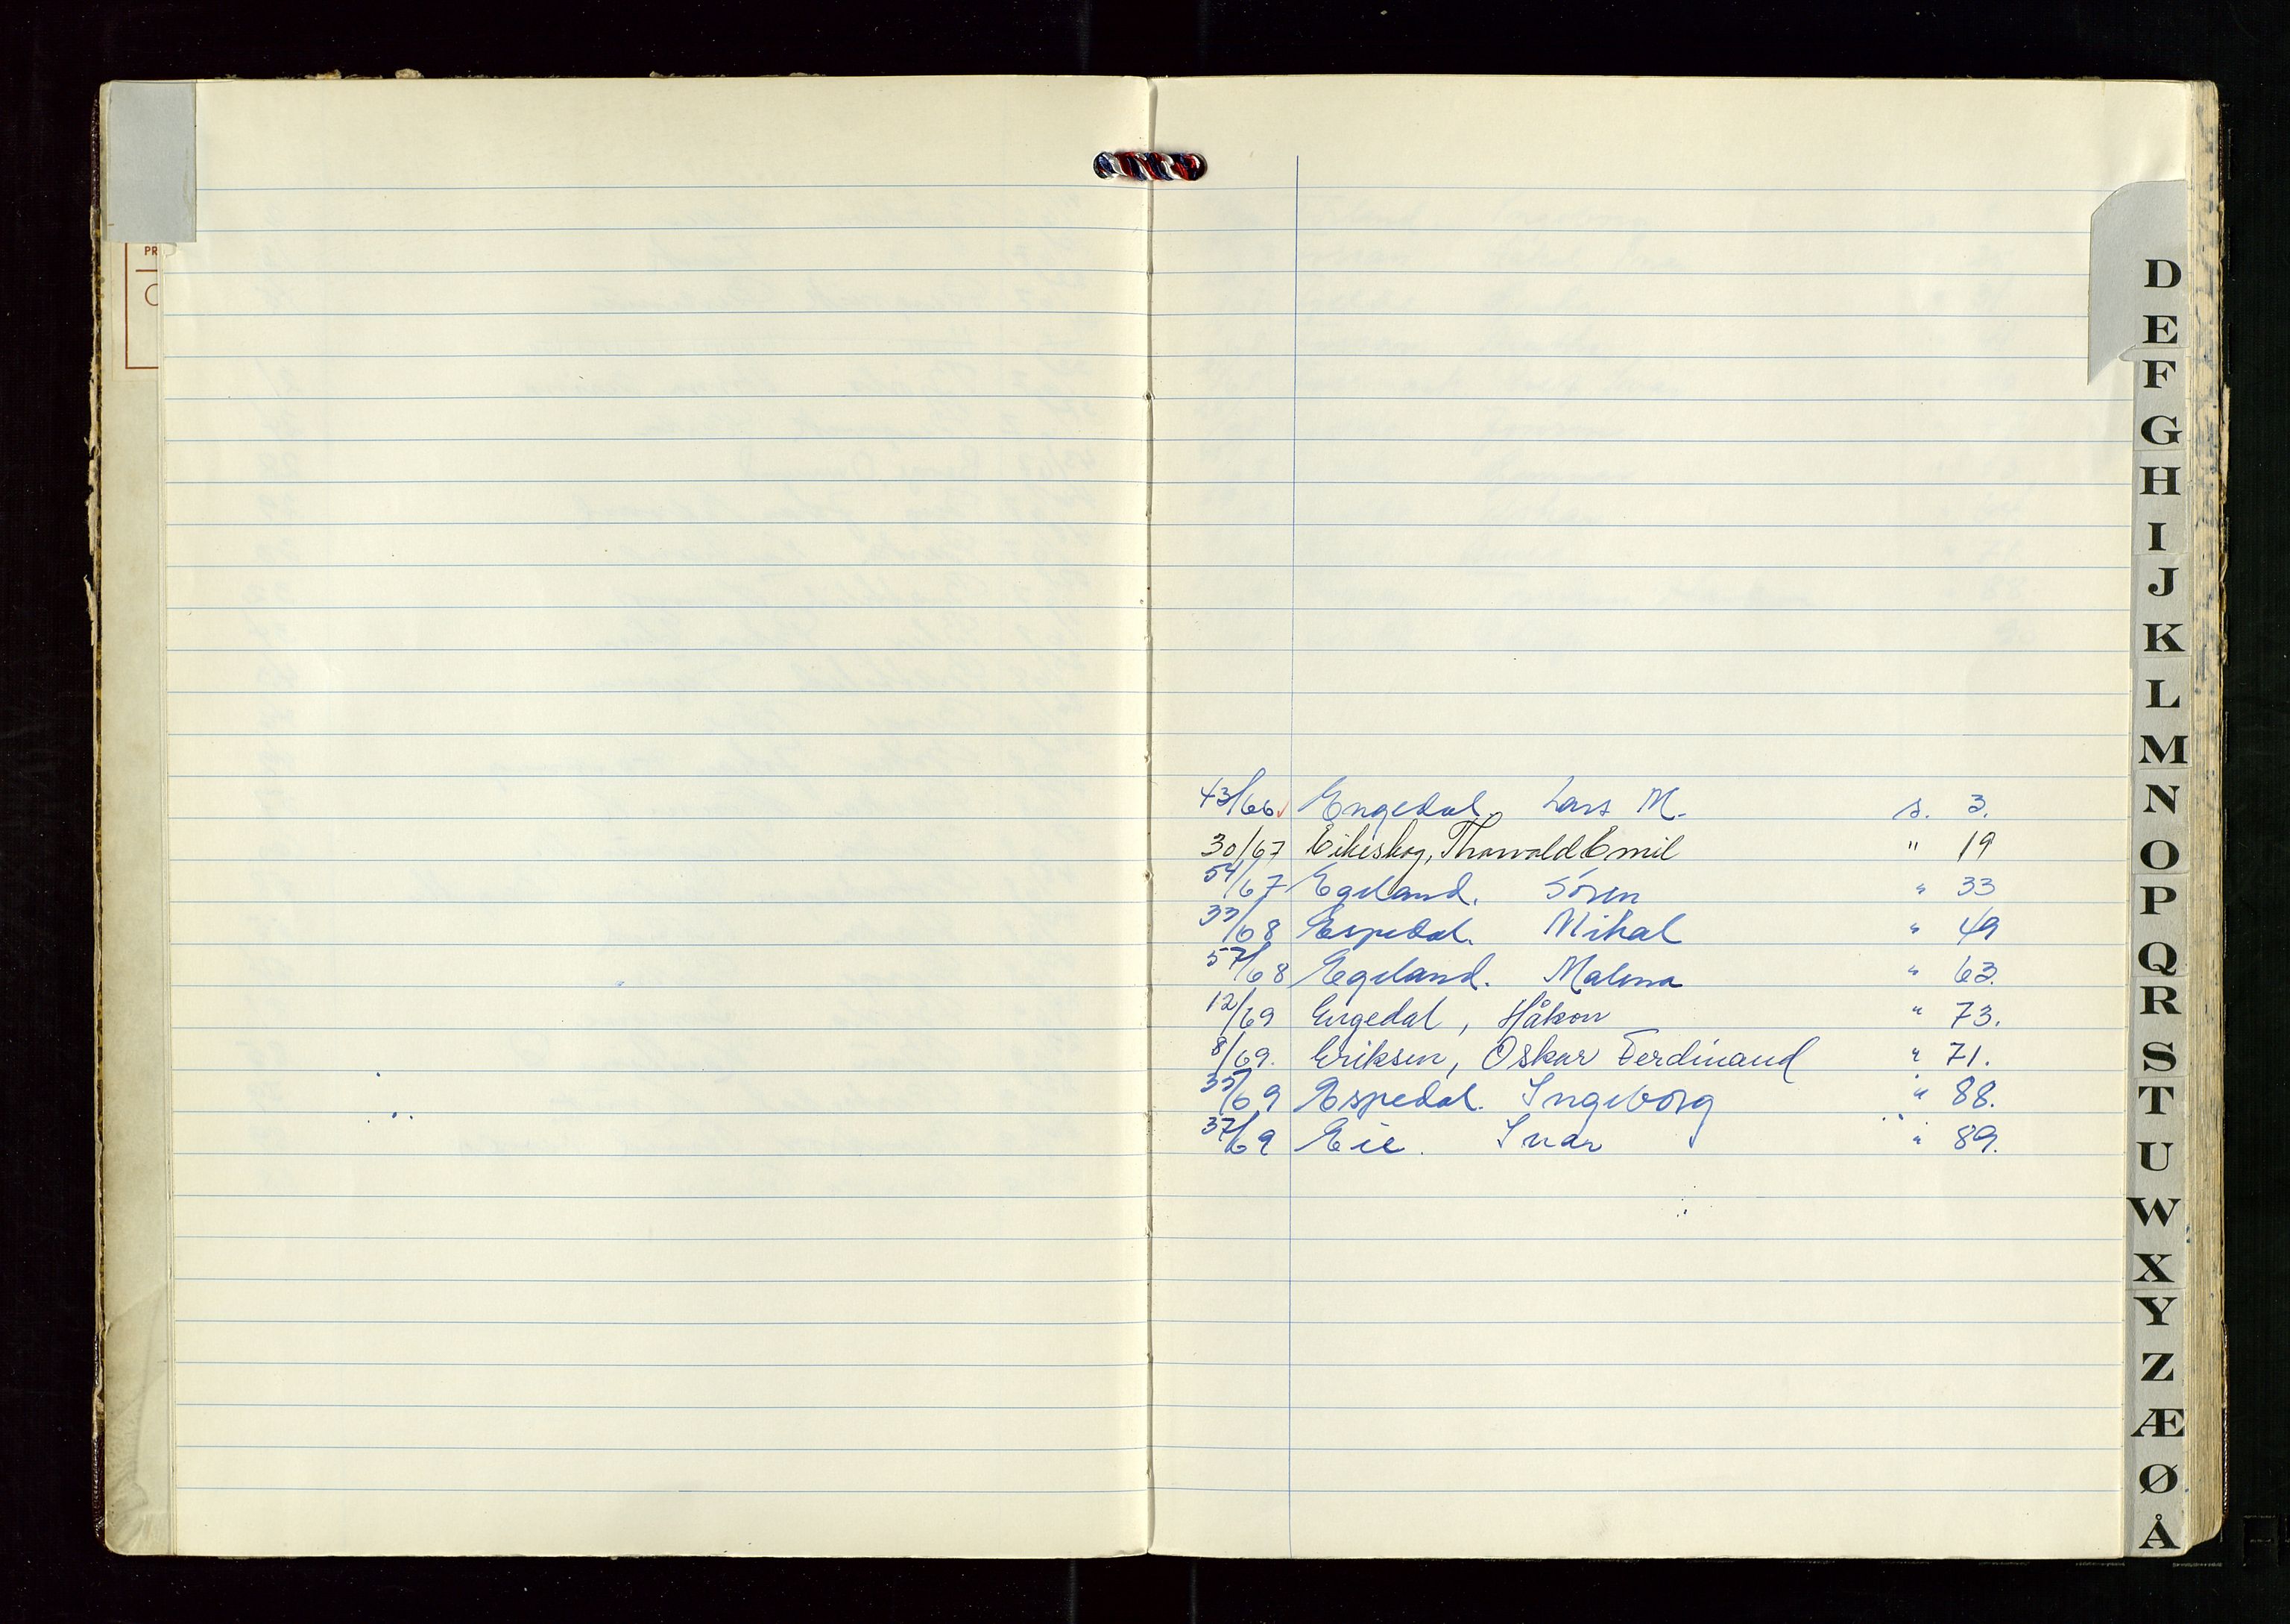 PR
43/66 Engedal, Lars M. s. 3.
30/67 Eikeskog, Thorvald Emil " 19
54/67 Egeland. Sören " 33
33/68 Espedal. Mikal " 49
57/68 Egeland. Malena " 63.
12/69 Engedal, Håkon " 73.
8/69. Eriksen, Oskar Ferdinand " 71.
35/69 Espedal. Ingeborg " 88.
37/69 Eie. Ivar " 89.
D
E
F
G
H
I
J
K
L
M
N
O
P
Q
R
S
T
U
W
X
Y
Z
Æ
Ø
Å